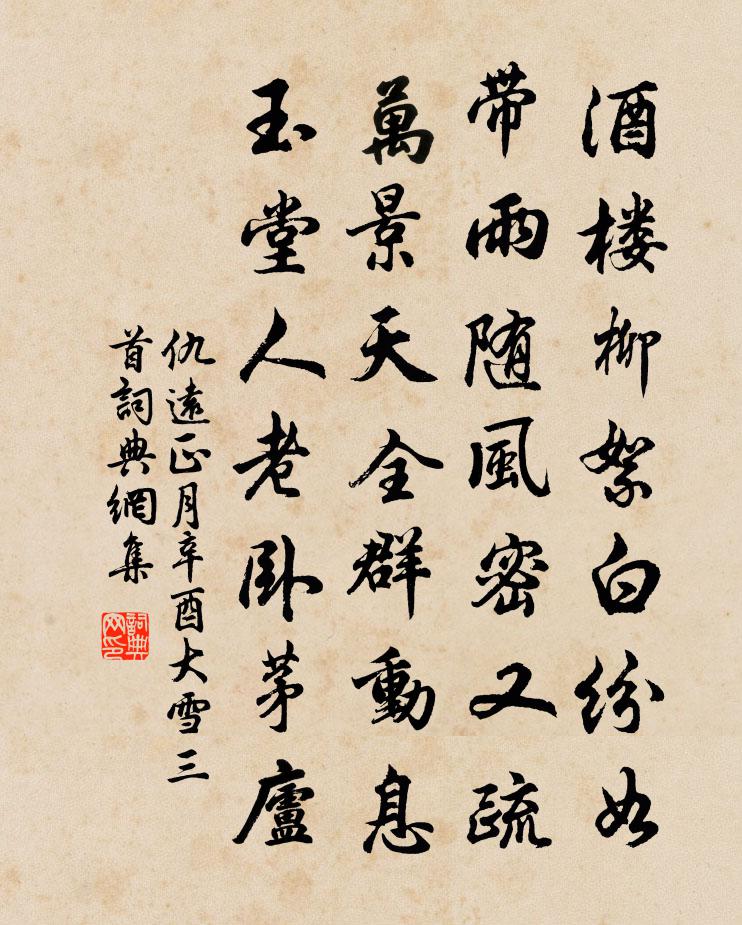 酒楼柳絮白纷如
带雨随風密又疏
萬景天全群動息
玉堂人老卧茅廬
仇遠正月辛酉大雪三
首詞典網集
詞典
网印